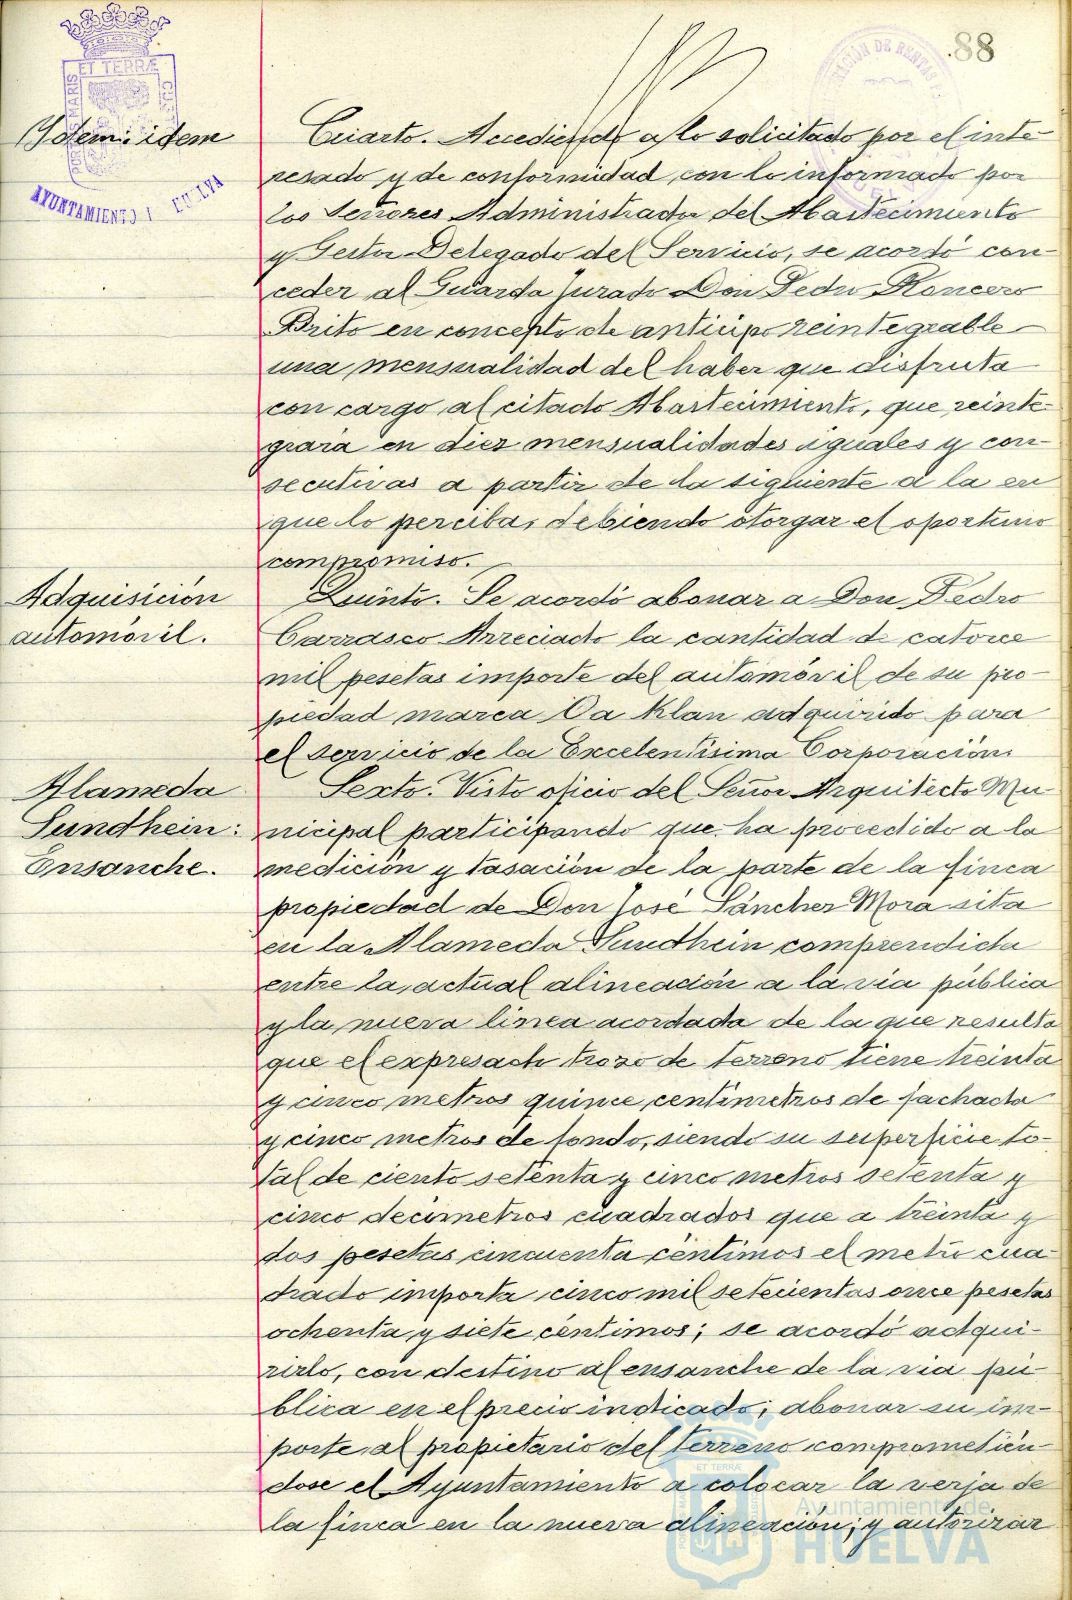 88
Ydem: idem
AYUNTAMIENTO
HUELVA
Cuarto. Accediendo a lo solicitado por el inte-
resado y de conformidad con lo informado por
los Señores Administrador del Abastecimiento
y Gestor Delegado del Servicio, se acordó con-
ceder al Guarda Jurado Don Pedro Roncero
Brito en concepto de anticipo reintegrable
una mensualidad del haber que disfruta
con cargo al citado Abastecimiento, que reinte-
grará en diez mensualidades iguales y con-
secutivas a partir de la siguiente a la en
que lo perciba, debiendo otorgar el oportuno
compromiso.
Adquisición
automóvil.
Quinto. Se acordó abonar a Don Pedro
Carrasco Arreciado la cantidad de catorce
mil pesetas importe del automóvil de su pro-
piedad marca Oa Klan adquirido para
el servicio de la Excelentísima Corporación.
Alameda
Sundhein:
Ensanche.
Sexto. Visto oficio del Señor Arquitecto Mu-
nicipal participando que ha procedido a la
medición y tasación de la parte de la finca
propiedad de Don José Sánchez Mora sita
en la Alameda Sundhein comprendida
entre la actual alineación a la vía pública
y la nueva línea acordada de la que resulta
que el expresado trozo de terreno tiene treinta
y cinco metros quince centímetros de fachada
y cinco metros de fondo, siendo su superficie to-
tal de ciento setenta y cinco metros setenta y
cinco decímetros cuadrados que a treinta y
dos pesetas cincuenta céntimos el metro cua-
drado importa cinco mil setecientas once pesetas
ochenta y siete céntimos; se acordó adqui-
rirlo, con destino al ensanche de la vía pú-
blica en el precio indicado; abonar su im-
porte al propietario del terreno comprometién-
dose el Ayuntamiento a colocar la verja de
la finca en la nueva alineación; y autorizar
Ayuntamiento de
HUELVA